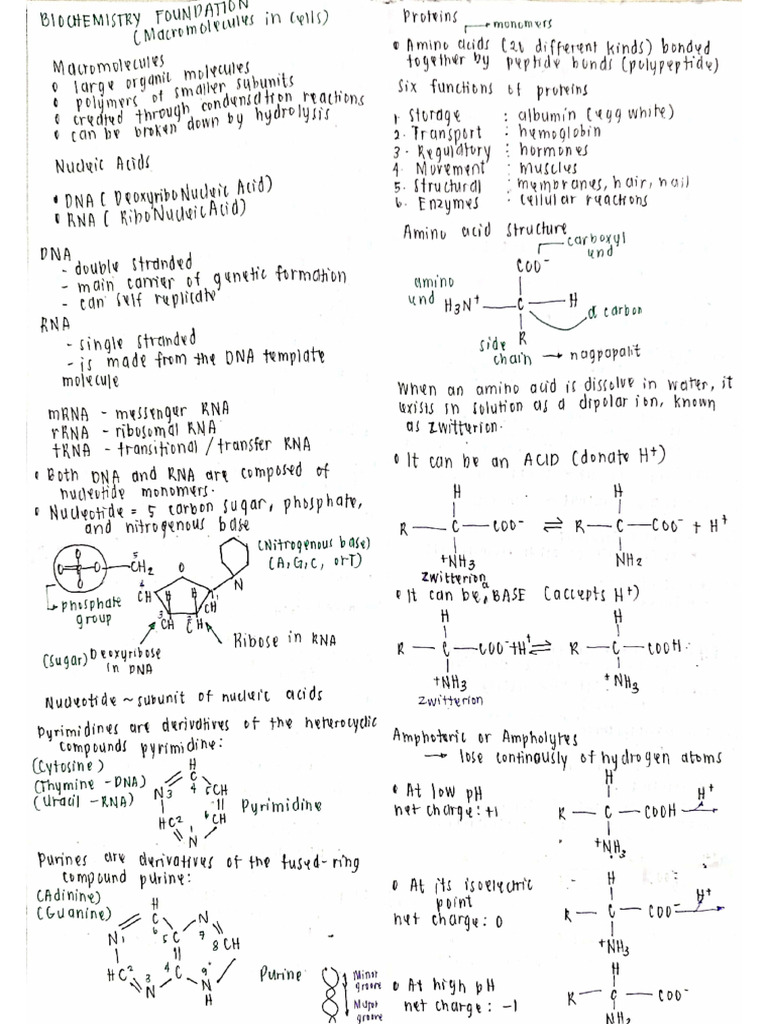 BIOCHEMISTRY FOUNDATION
(Macromolecules in Cells)
Macromolecules
o large organic molecules
o polymers of smaller subunits
o created through condensation reactions
o can be broken down by hydrolysis
Nucleic Acids
• DNA (DeoxyriboNucleic Acid)
• RNA (RiboNucleicAcid)
DNA
- double stranded
- main carrier of genetic formation
- can self replicate
RNA
- single stranded
- is made from the DNA template
molecule
mRNA - messenger RNA
rRNA - ribosomal RNA
tRNA - transitional / transfer RNA
o Both DNA and RNA are composed of
nucleotide monomers.
o Nucleotide = 5 carbon sugar, phosphate,
and nitrogenous base
(Nitrogenous base)
(A, G, C, or T)
O O
5
CH2
O
N
4
CH
1
CH
3
CH
2
CH
phosphate
group
(sugar) Deoxyribose
in DNA
Ribose in RNA
Nucleotide ~ subunit of nucleic acids
Pyrimidines are derivatives of the heterocyclic
compounds pyrimidine:
(Cytosine)
(Thymine - DNA)
(Uracil - RNA)
H
C
N3 4 5CH
HC2 6CH
N
Pyrimidine
Purines are derivatives of the fused-ring
compound purine:
(Adinine)
(Guanine)
H
C
6
N1 5C N
7
8 CH
HC2 4 C
3
N
9
N
H
Purine
Minor
groove
Major
groove
Proteins
monomers
o Amino acids (20 different kinds) bonded
together by peptide bonds (polypeptide)
Six functions of proteins
1. Storage : albumin (egg white)
2. Transport : hemoglobin
3. Regulatory : hormones
4. Movement : muscles
5. Structural : membranes, hair, nail
6. Enzymes : cellular reactions
Amino acid structure
carboxyl
end
COO-
amino
end
H3N+ C H
α carbon
R
side
chain → nagpapalit
When an amino acid is dissolve in water, it
exists in solution as a dipolar ion, known
as zwitterion.
o It can be an ACID (donate H+)
H H
R — C — COO- ⇌ R — C — COO- + H+
+NH3 NH2
zwitterion
o It can be a BASE (accepts H+)
H H
R — C — COO- + H+ ⇌ R — C — COOH
+NH3 +NH3
zwitterion
Amphoteric or Ampholytes
→ lose continously of hydrogen atoms
o At low pH
net charge: +1
H
R — C — COOH
+NH3
H+
o At its isoelectric
point
net charge: 0
H
R — C — COO-
+NH3
H+
o At high pH
net charge: -1
H
R — C — COO-
NH2